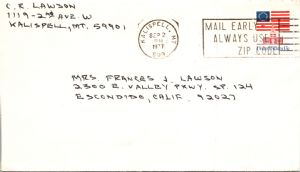 C. R. LAWSON
1119-2ND AVE. W
KALISPELL, MT. 59901
KALISPELL, MT
SEP 2
PM
1977
MAIL EARLY
ALWAYS USE
ZIP CODE
MRS. FRANCES J. LAWSON
2300 E. VALLEY PKWY. SP. 124
ESCONDIDO, CALIF. 92027